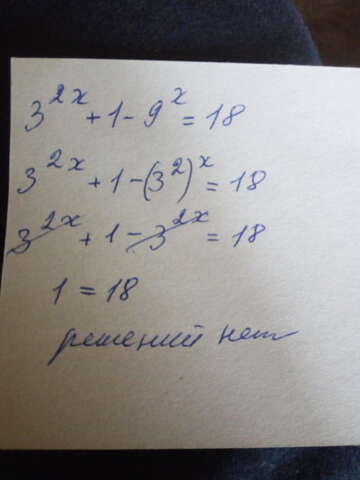 3^2x + 1 - 9^x = 18
3^2x + 1 - (3^2)^x = 18
3^2x + 1 - 3^2x = 18
1 = 18
решений нет